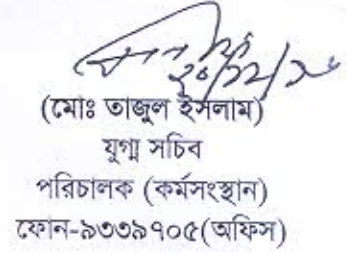 (মোঃ তাজুল ইসলাম)
যুগ্ম সচিব
পরিচালক (কর্মসংস্থান)
ফোন-৯৩৩৯৭০৫(অফিস)